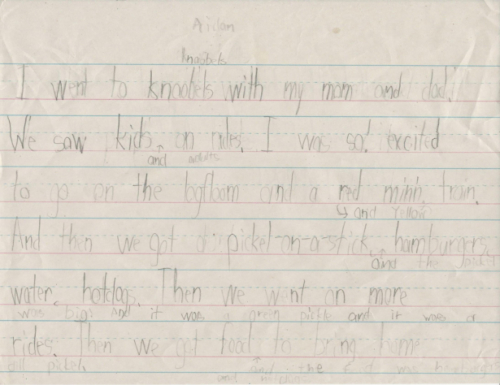 Aidan
Knoebels
I went to knoebels with my mom and dad!
We saw kids on rides. I was so! excited
and adults
to go on the logfloam and a red minin train.
and yellow
And then we got a pickel-on-a-stick, hamburgers,
and the pickel
water, hotdogs. Then we went on more
was bigs And it was a green pickle and it was a
rides. Then we got food to bring home
dill pickel.
and the
and